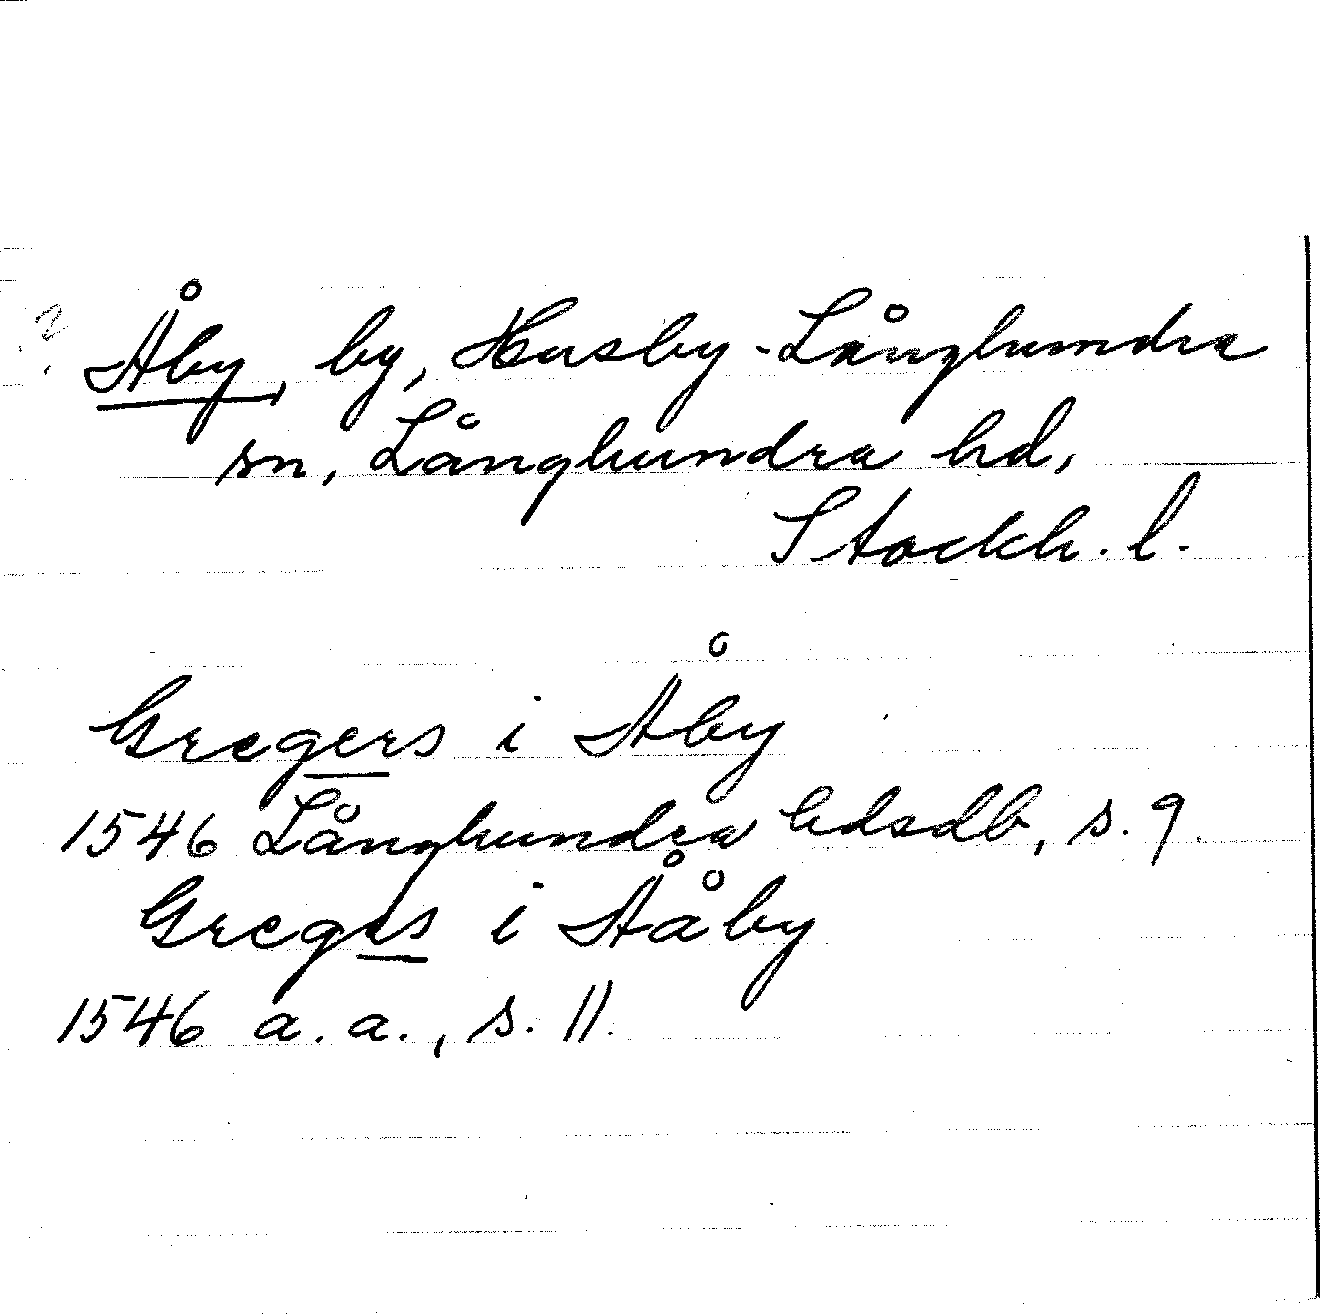 ? Åby, by, Husby-Långhundra
sn, Långhundra hd,
Stockh. l.
Gregers i Åby
1546 Långhundra hdsdb, s. 9.
Greges i Ååby
1546 a. a., s. 11.